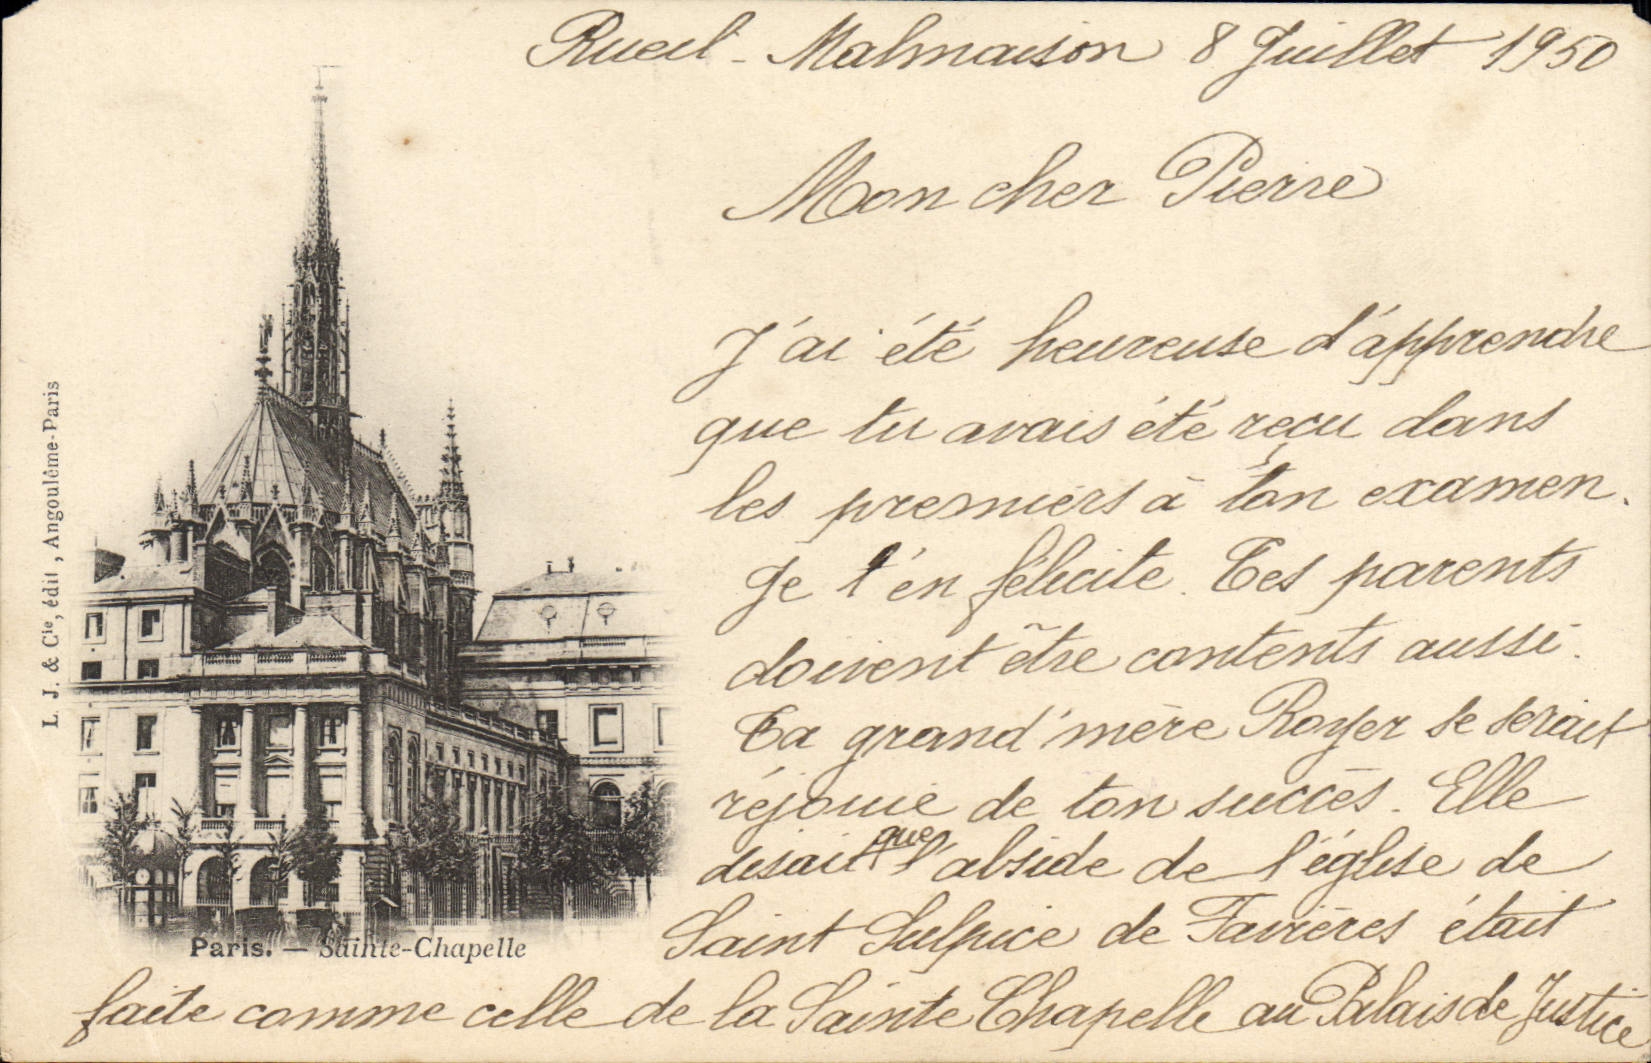 Rueil-Malmaison 8 Juillet 1950
Mon cher Pierre
J'ai été heureuse d'apprendre
que tu avais été reçu dans
les premiers à ton examen.
Je t'en félicite. Tes parents
doivent être contents aussi.
Ta grand'mère Royer se serait
réjouie de ton succès. Elle
disait que l'abside de l'église de
Saint Sulpice de Favières était
faite comme celle de la Sainte Chapelle au Palais de Justice
Paris. — Sainte-Chapelle
L. J. & Cie, édit, Angoulême-Paris